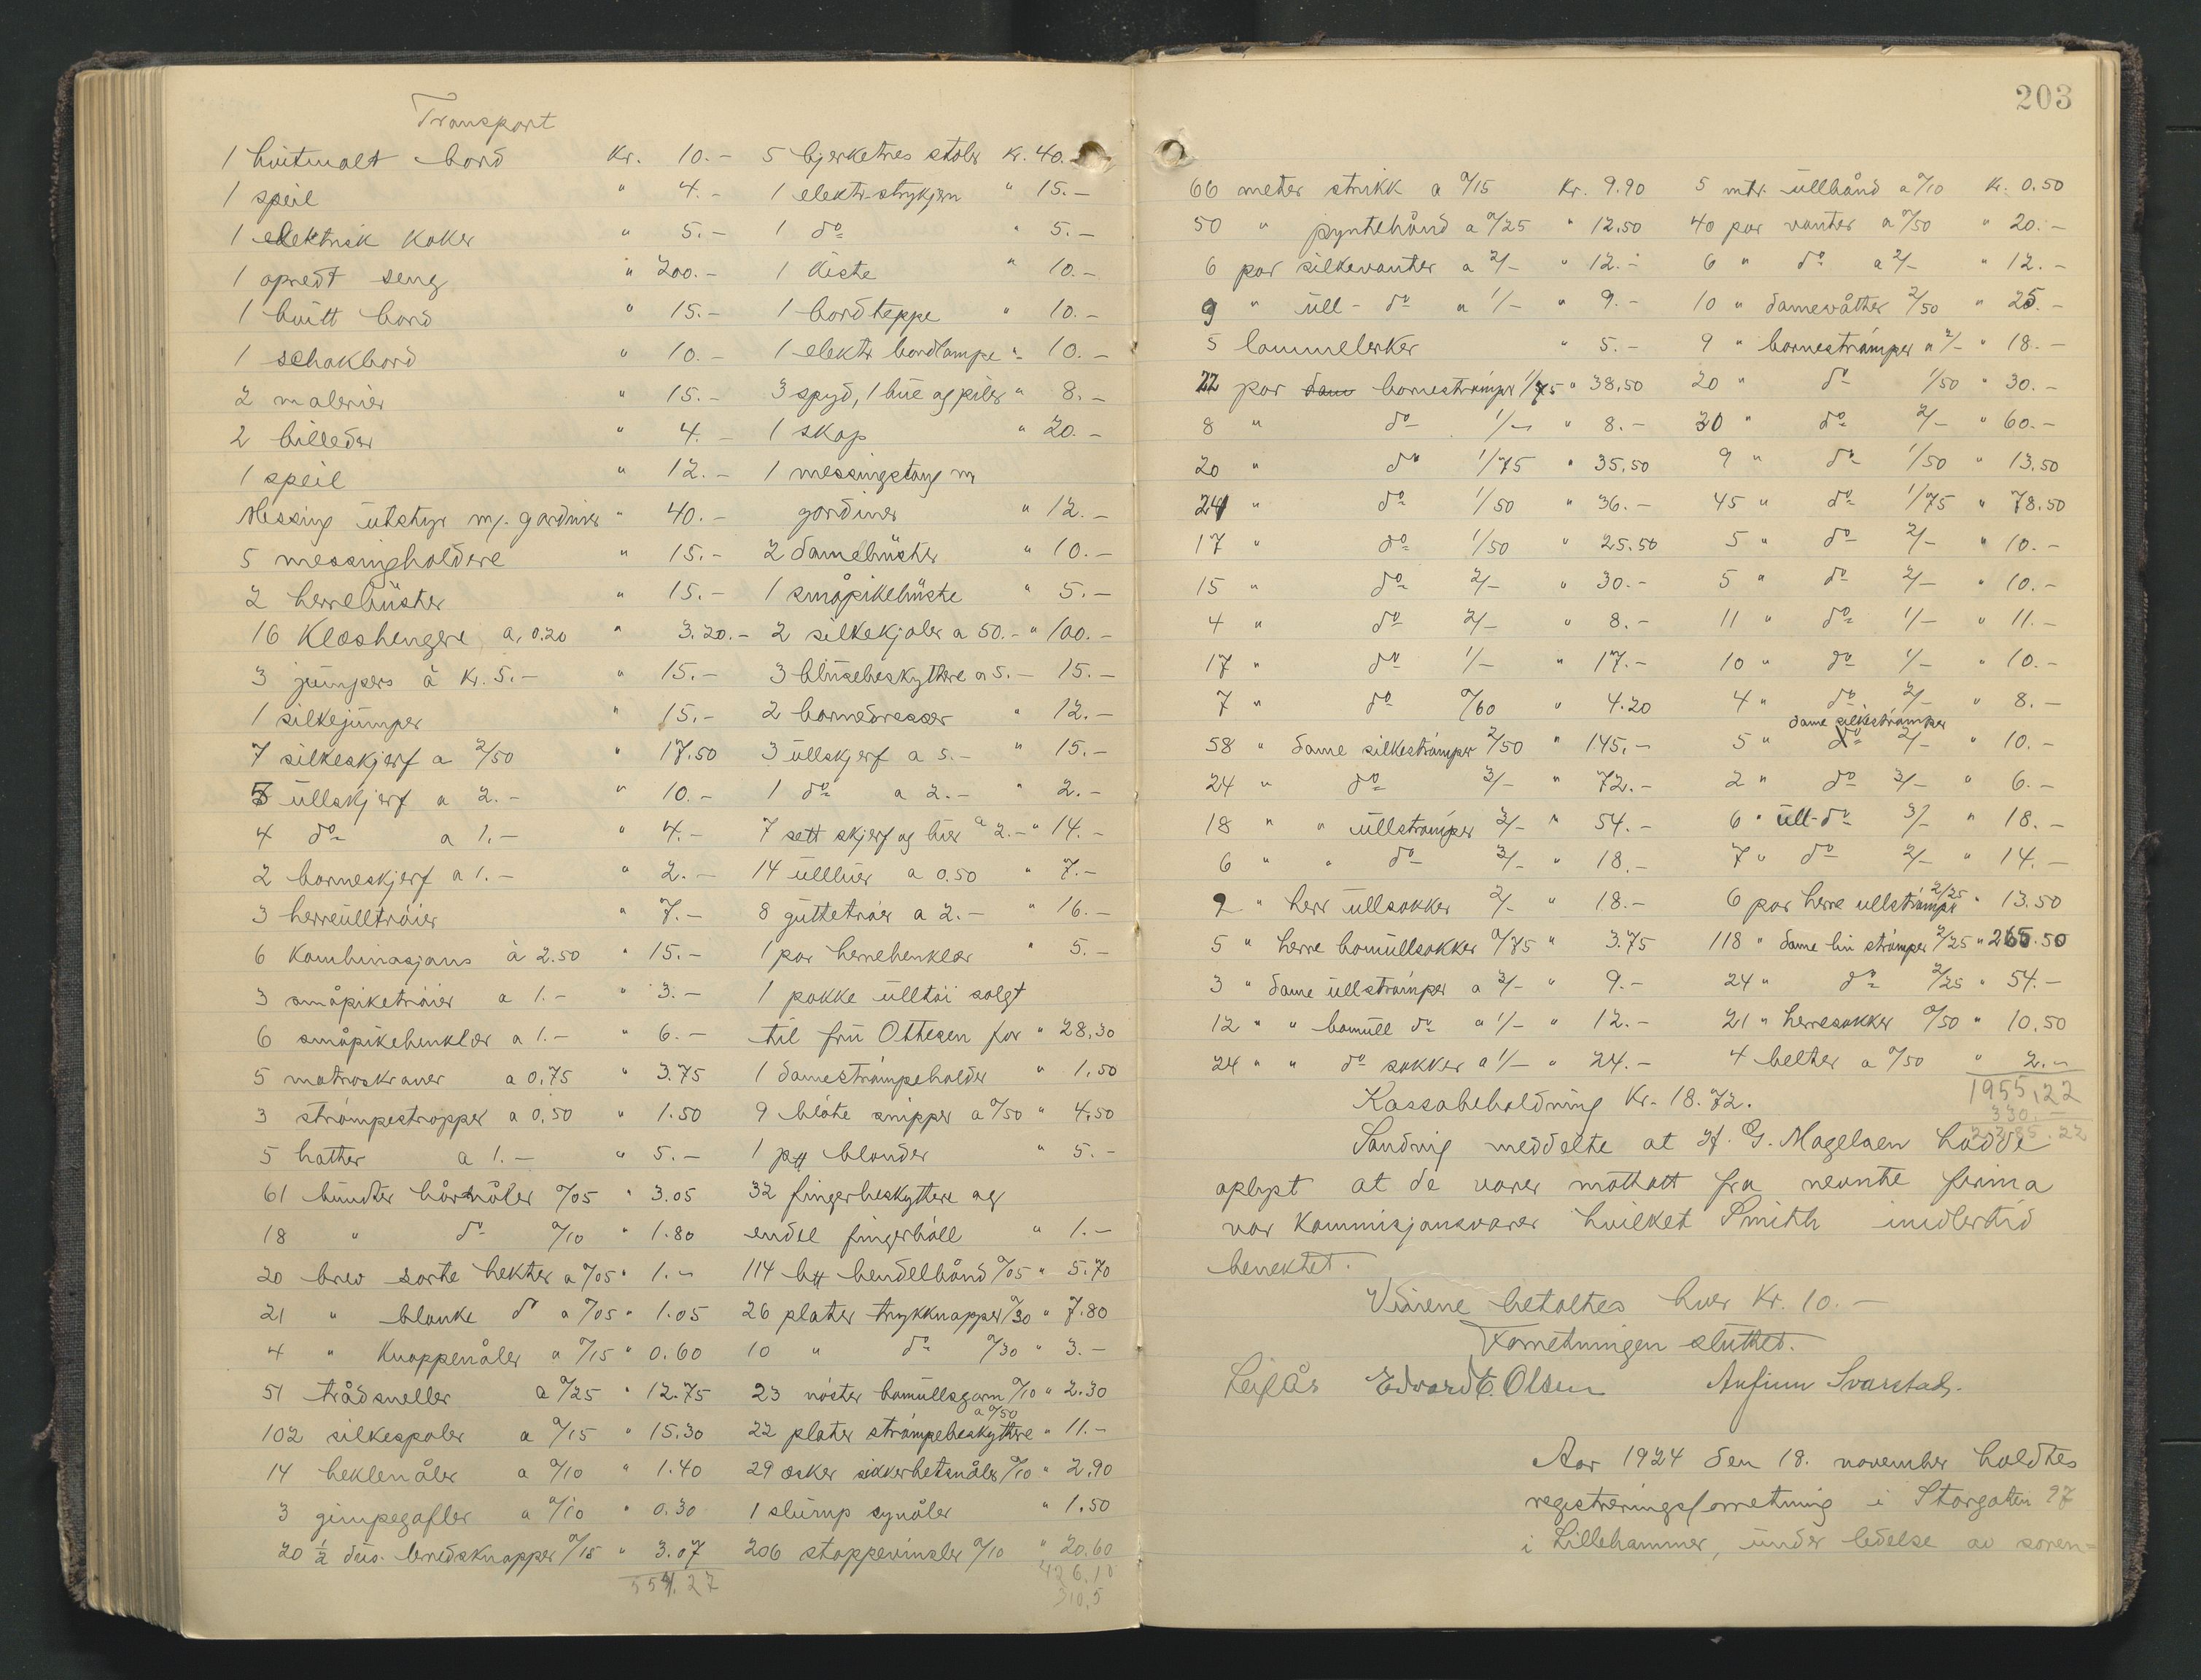 Transport
1 hvitmalt bord Kr. 10.- 5 bjerketres stoler Kr. 40.-
1 speil " 4.- 1 elektr. strykjern " 15.-
1 elektrisk koker " 5.- 1 do " 5.-
1 opredt seng " 200.- 1 kiste " 10.-
1 hvitt bord " 15.- 1 bordteppe " 10.-
1 schakbord " 10.- 1 elektr bordlampe " 10.-
2 malerier " 15.- 3 spyd, 1 bue og piler " 8.-
2 billeder " 4.- 1 skap " 20.-
1 speil " 12.- 1 messingstang m
Messing utstyr m/. gardiner " 40.- gardiner " 12.-
5 messingholdere " 15.- 2 damebuster " 10.-
2 herrebuster " 15.- 1 småpikebuste " 5.-
16 Kleshengere a. 0.20 " 3.20.- 2 silkekjoler a 50.- " 100.-
3 jumpers à Kr. 5.- " 15.- 3 blusebeskyttere a 5.- 15.-
1 silkejumper " 15.- 2 barnedresser " 12.-
7 silkeskjerf a 2/50 " 17.50 3 ullskjerf a 5.- " 15.-
5 ullskjerf a 2.- " 10.- 1 do a 2.- " 2.-
4 do a 1.- " 4.- 7 sett skjerf og luer a 2.- " 14.-
2 barneskjerf a 1.- " 2.- 14 ullluer a 0.50 " 7.-
3 herreulltröier " 7.- 8 guttetröier a 2.- " 16.-
6 Kombinasjons à 2.50 " 15.- 1 par herrebenklær " 5.-
3 småpiketröier a 1.- " 3.- 1 pakke ulltöi solgt
6 småpikebenklær a 1.- " 6.- til fru Ottesen for " 28,30
5 matroskraver a 0,75 " 3.75 1 damestrømpeholder " 1,50
3 strømpestropper a 0,50 " 1.50 9 bløte snipper a 0/50 " 4,50
5 hatter a 1.- " 5.- 1 p# blonder " 5.-
61 bundter hårnåler 0/05 " 3.05 32 fingerbeskyttere og
18 " do 0/10 " 1.80 endel fingerböll " 1.-
20 brev sorte hekter a 0/05 " 1.- 114 b# bendelbånd 0/05 " 5.70
21 " blanke do a 0/05 " 1.05 26 plater trykknapper 0/30 " 7.80
4 " Knappenåler a 0/15 " 0.60 10 " do 0/30 " 3.-
51 trådsneller a 0/25 " 12.75 23 nöster bomullsgarn 0/10 " 2.30
102 silkespoler a 0/15 " 15.30 22 plater strømpebeskyttere a 0/50 " 11.-
14 heklenåler a 0/10 " 1.40 29 æsker sikkerhetsnåler 0/10 " 2,90
3 gimpegafler a 0/10 " 0.30 1 slump synåler " 1.50
20 1/2 dus. lerredsknapper 0/15 " 3.07 206 stoppevinsler 0/10 " 20.60
554.27 426.10
310,5
203
66 meter strikk a 0/15 Kr. 9.90 5 mtr. ullbånd a 0/10 Kr. 0.50
50 " pyntebånd a 0/25 " 12.50 40 par vanter a 0/50 " 20.-
6 par silkevanter a 2/- " 12.- 6 " do a 2/- " 12.-
9 " ull- do a 1/- " 9.- 10 " damevåtter 2/50 " 25.-
5 lommelerker " 5.- 9 " barnestrømper a 2/- " 18.-
22 par dame barnestrømper 1/75 " 38,50 20 " do 1/50 " 30.-
8 " do 1/- " 8.- 30 " do 2/- " 60.-
20 " do 1/75 " 35,50 9 " do 1/50 " 13.50
24 " do 1/50 " 36.- 45 " do 1/75 " 78.50
17 " do 1/50 " 25.50 5 " do 2/- " 10.-
15 " do 2/- " 30.- 5 " do 2/- " 10.-
4 " do 2/- " 8.- 11 " do 1/- " 11.-
17 " do 1/- " 17.- 10 " do 1/- " 10.-
7 " do 0/60 " 4.20 4 " do 2/- " 8.-
dame silkestrømper
58 " dame silkestrømper 2/50 " 145.- 5 " do 2/- " 10.-
24 " do 3/- " 72.- 2 " do 3/- " 6.-
18 " " ullstrømper 3/- " 54.- 6 " ull-do 3/- " 18.-
6 " " do 3/- " 18.- 7 " do 2/- " 14.-
9 " herr ullsokker 2/- " 18.- 6 par herre ullstrømper 2/25 " 13.50
5 " herre bomullsokker 0/75 " 3.75 118 " dame lin strømper 2/25 " 265.50
3 " dame ullstrømper a 3/- " 9.- 24 " do 2/25 " 54.-
12 " " bomull do a 1/- " 12.- 21 " herresokker 0/50 " 10,50
24 " " do sokker a 1/- " 24.- 4 belter a 0/50 " 2.-
1955,22
Kassabeholdning Kr. 18.72.
330.-
2285.22
Sandvig meddelte at H. G. Magelsen hadde
oplyst at de varer mottatt fra nevnte firma
var kommisjonsvarer hvilket Smith imidlertid
benektet.
Vidnene betaltes hver Kr. 10.-
Forretningen sluttet.
Leif Ås Edvard E. Olsen Anfinn Svarstad.
Aar 1924 den 18. november holdtes
registreringsforretning i Storgaten 97
i Lillehammer, under ledelse av soren=